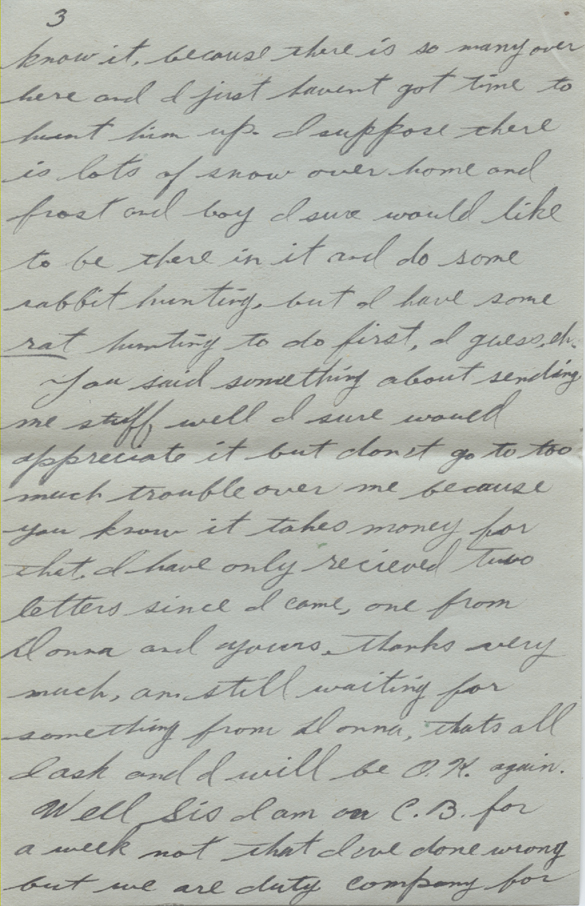 3
know it, because there is so many over
here and I just havent got time to
hunt him up. I suppose there
is lots of snow over home and
frost and boy I sure would like
to be there in it and do some
rabbit hunting, but I have some
rat hunting to do first, I guess, eh.
You said something about sending
me stuff, well I sure would
appreciate it but dont go to too
much trouble over me because
you know it takes money for
that. I have only recieved two
letters since I came, one from
Donna and yours, thanks very
much, am still waiting for
something from Donna, thats all
I ask and I will be O.K. again.
Well Sis I am on C.B. for
a week not that Ive done wrong
but we are duty company for